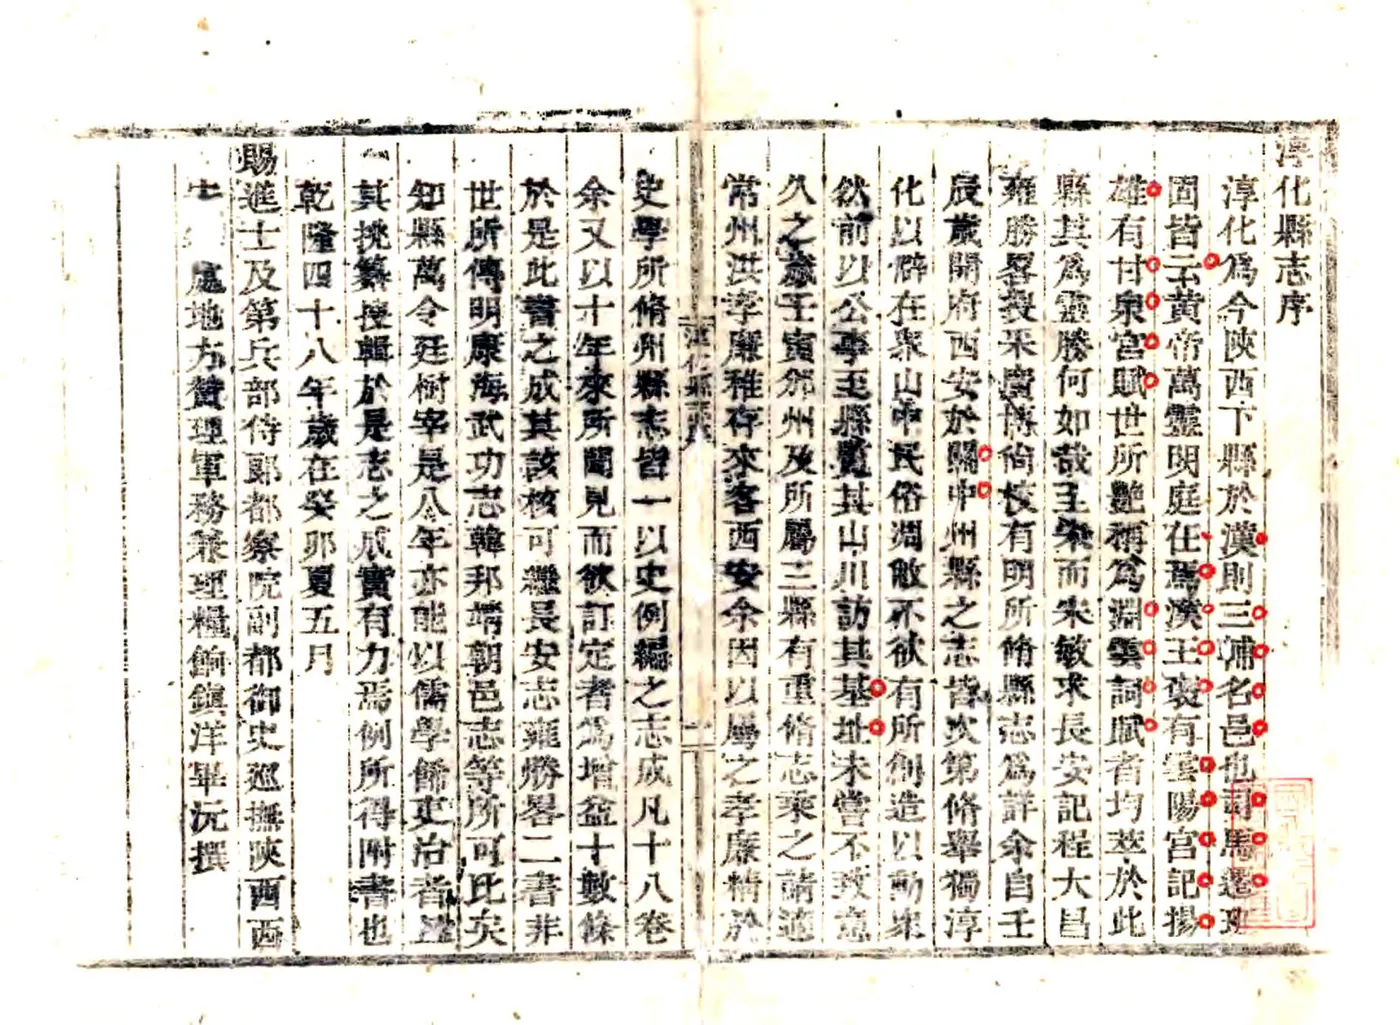 淳化縣志序
淳化爲今陝西下縣於漢則三輔名邑也司馬遷班
固皆云黃帝萬靈明庭在焉漢王襃有雲陽宮記揚
雄有甘泉宮賦世所艷稱爲淵雲詞賦者均萃於此
縣其爲靈勝何如哉而宋敏求長安記程大昌
雍勝畧采有明所脩縣志爲詳余自壬
辰歲開府西安於關中州縣之志皆次第脩舉獨淳
化以僻在眾山中民俗凋敝不欲有所創造以動眾
然前以公事至縣覽其山川訪其基址未嘗不致意
久之歲壬寅邠州及所屬三縣有重脩志乘之請適
常州洪孝廉稚存來客西安余因以屬之孝廉精於
淳化縣志序
一
史學所脩州縣志皆一以史例編之志成凡十八卷
余又以十年來所聞見而欲訂定者爲增益十數條
於是此書之成其該核可繼長安志雍勝畧二書非
世所傳明康海武功志韓邦靖朝邑志等所可比矣
知縣萬令廷樹宰是八年亦能以儒學餙吏治者
其搜輯於是志之成實有力焉例所得附書也
乾隆四十八年歲在癸卯夏五月
賜進士及第兵部侍郎都察院副都御史巡撫陝西西
處地方贊理軍務兼理糧餉鎮洋畢沅撰